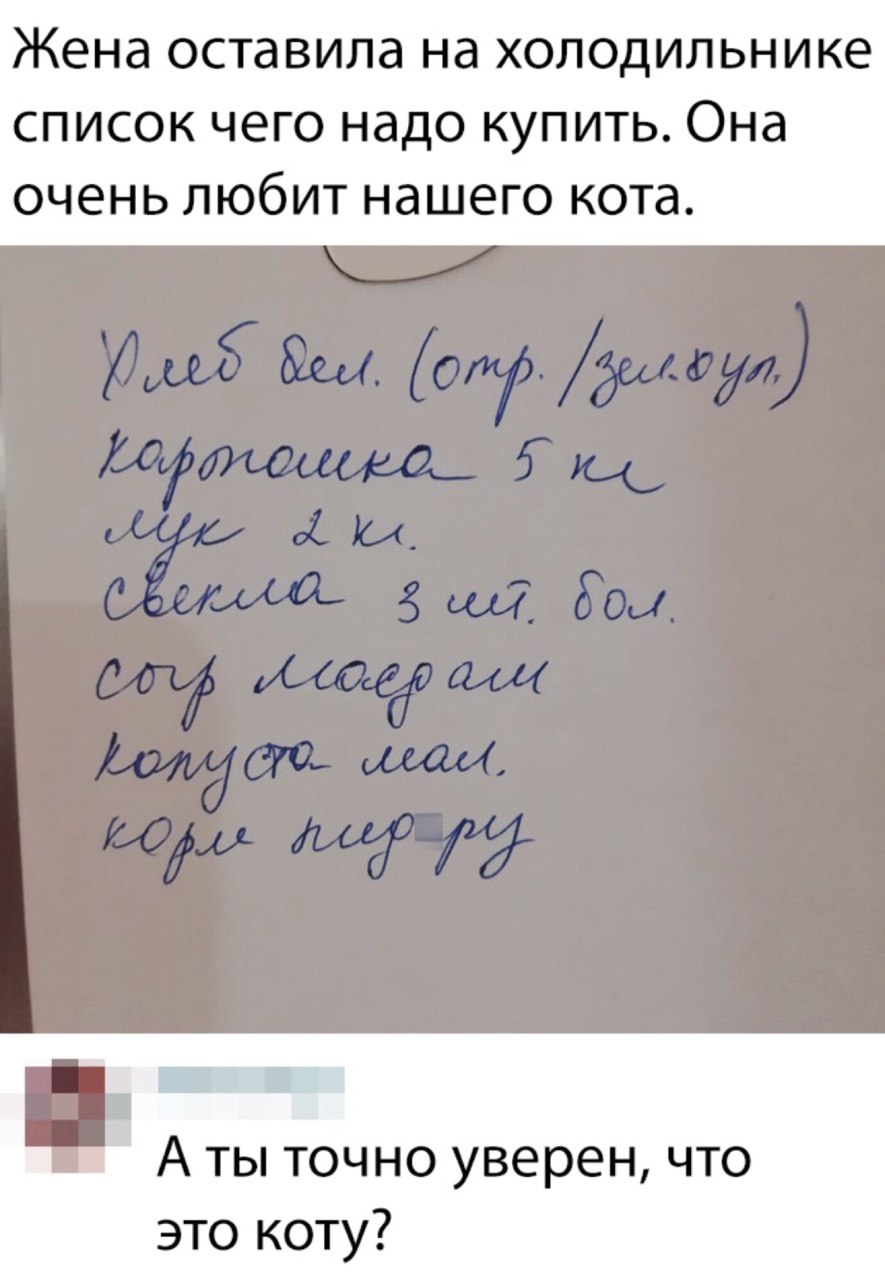 Жена оставила на холодильнике
список чего надо купить. Она
очень любит нашего кота.
Хлеб бел. (отр./зел.бул.)
картошка 5 кг
лук 2 кг.
свекла 3 шт. бол.
сыр маздам
капуста мал.
корм пид ру
А ты точно уверен, что
это коту?